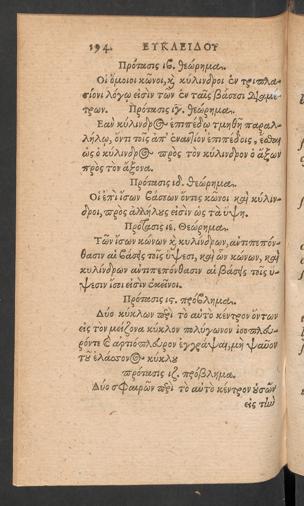 194. ΕΥΚΛΕΙΔΟΥ
Πρότασις ιβ. θεώρημα.
Οἱ ὅμοιοι κῶνοι, κ̀ κύλινδροι ἐν τριπλα-
σίονι λόγῳ εἰσὶν τῶν ἐν ταῖς βάσεσι διαμέ-
τρων. Πρότασις ιγ. θεώρημα.
Εαν κύλινδρος ἐπιπέδῳ τμηθῇ παραλ-
λήλῳ, ὄντι τοῖς ἀπ' ἐναντίον ἐπιπέδοις, ἔσται
ὡς ὁ κύλινδρος πρὸς τὸν κύλινδρον ὁ ἄξων
πρὸς τὸν ἄξονα.
Πρότασις ιδ. θεώρημα.
Οἱ ἐπὶ ἴσων βάσεων ὄντες κῶνοι καὶ κύλιν-
δροι, πρὸς ἀλλήλους εἰσὶν ὡς τὰ ὕψη.
Πρότασις ιε. Θεώρημα.
Τῶν ἴσων κώνων κ̀ κυλίνδρων, ἀντιπεπόν-
θασιν αἱ βάσεις τοῖς ὕψεσι, καὶ ὧν κώνων, καὶ
κυλίνδρων ἀντιπεπόνθασιν αἱ βάσεις τοῖς ὕ-
ψεσιν ἴσοι εἰσὶν ἐκεῖνοι.
Πρότασις ις. πρόβλημα.
Δύο κύκλων περὶ τὸ αὐτὸ κέντρον ὄντων
εἰς τὸν μείζονα κύκλον πολύγωνον ἰσοπλευ-
ρόντε κ̀ ἀρτιόπλευρον ἐγγράψαι, μὴ ψαῦον
τοῦ ἐλάσσονος κύκλου
πρότασις ιζ. πρόβλημα.
Δύο σφαιρῶν περὶ τὸ αὐτὸ κέντρον οὐσῶν
εἰς τὴν